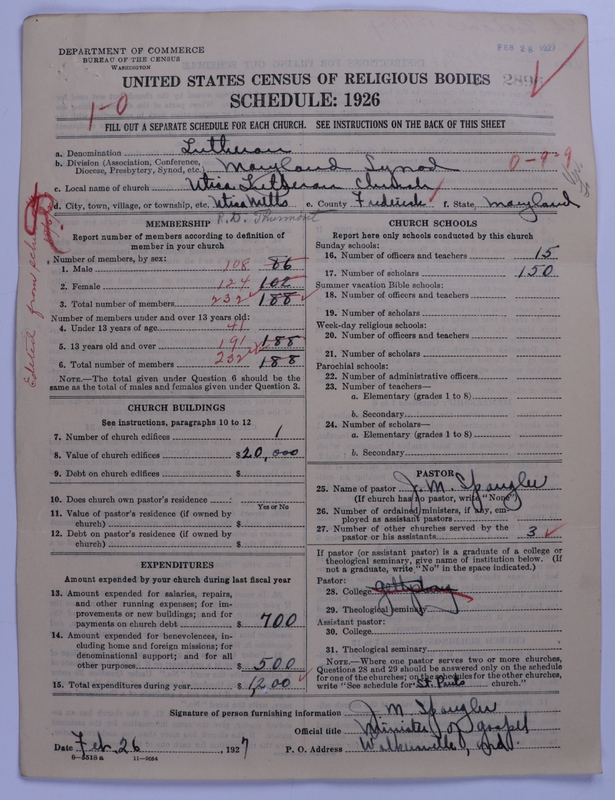 DEPARTMENT OF COMMERCE
BUREAU OF THE CENSUS
WASHINGTON
FEB 28 1927
UNITED STATES CENSUS OF RELIGIOUS BODIES
2896
SCHEDULE: 1926
1-0
FILL OUT A SEPARATE SCHEDULE FOR EACH CHURCH. SEE INSTRUCTIONS ON THE BACK OF THIS SHEET
a. Denomination Lutheran
b. Division (Association, Conference, Diocese, Presbytery, Synod, etc.) Maryland Synod
0-9-9
c. Local name of church Utica Lutheran Church
d. City, town, village, or township, etc. Utica Mills e. County Frederick f. State Maryland
R.D. Thurmont
MEMBERSHIP
Report number of members according to definition of member in your church
Number of members, by sex:
1. Male 108 86
2. Female 124 102
3. Total number of members 232 188
Number of members under and over 13 years old:
4. Under 13 years of age 41
5. 13 years old and over 191 188
6. Total number of members 232 188
NOTE.—The total given under Question 6 should be the same as the total of males and females given under Question 3.
CHURCH BUILDINGS
See instructions, paragraphs 10 to 12
7. Number of church edifices 1
8. Value of church edifices $20,000
9. Debt on church edifices $
10. Does church own pastor's residence :
Yes or No
11. Value of pastor's residence (if owned by church) $
12. Debt on pastor's residence (if owned by church) $
EXPENDITURES
Amount expended by your church during last fiscal year
13. Amount expended for salaries, repairs, and other running expenses; for improvements or new buildings; and for payments on church debt $ 700
14. Amount expended for benevolences, including home and foreign missions; for denominational support; and for all other purposes $ 500
15. Total expenditures during year $ 1,200
CHURCH SCHOOLS
Report here only schools conducted by this church
Sunday schools:
16. Number of officers and teachers 15
17. Number of scholars 150
Summer vacation Bible schools:
18. Number of officers and teachers
19. Number of scholars
Week-day religious schools:
20. Number of officers and teachers
21. Number of scholars
Parochial schools:
22. Number of administrative officers
23. Number of teachers—
a. Elementary (grades 1 to 8)
b. Secondary
24. Number of scholars—
a. Elementary (grades 1 to 8)
b. Secondary
PASTOR
25. Name of pastor J. M. Spangler
(If church has no pastor, write "None")
26. Number of ordained ministers, if any, employed as assistant pastors
27. Number of other churches served by the pastor or his assistants 3
If pastor (or assistant pastor) is a graduate of a college or theological seminary, give name of institution below. (If not a graduate, write "No" in the space indicated.)
Pastor:
28. College Gettysburg
29. Theological seminary
Assistant pastor:
30. College
31. Theological seminary
NOTE.—Where one pastor serves two or more churches, Questions 28 and 29 should be answered only on the schedule for one of the churches; on the schedules for the other churches, write "See schedule for St. Pauls church."
Signature of person furnishing information J. M. Spangler
Official title Minister of gospel
Date Feb. 26 1927 P. O. Address Walkersville, Md.
8—5516 a 11—9054